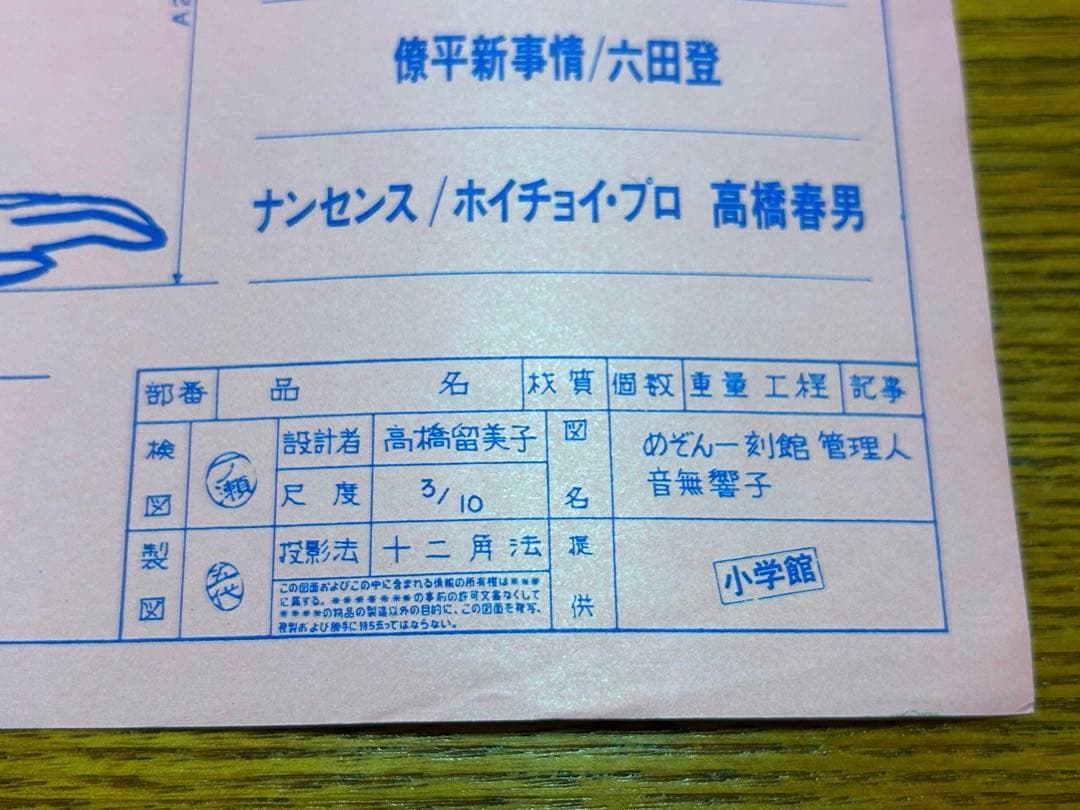 僚平新事情/六田登
ナンセンス/ホイチョイ・プロ 高橋春男
部番 品名 材質 個数 重量 工程 記事
検図 一ノ瀬 設計者 高橋留美子 図名 めぞん一刻館 管理人
音無響子
尺度 3/10
製図 五代 投影法 十二角法 提供 小学館
この図面およびこの中に含まれる情報の所有権は※※※
に属する。※※※※※※※の事前の許可文書なくして
※※※※の物品の製造以外の目的に、この図面を複写、
複製および勝手に持ち去ってはならない。